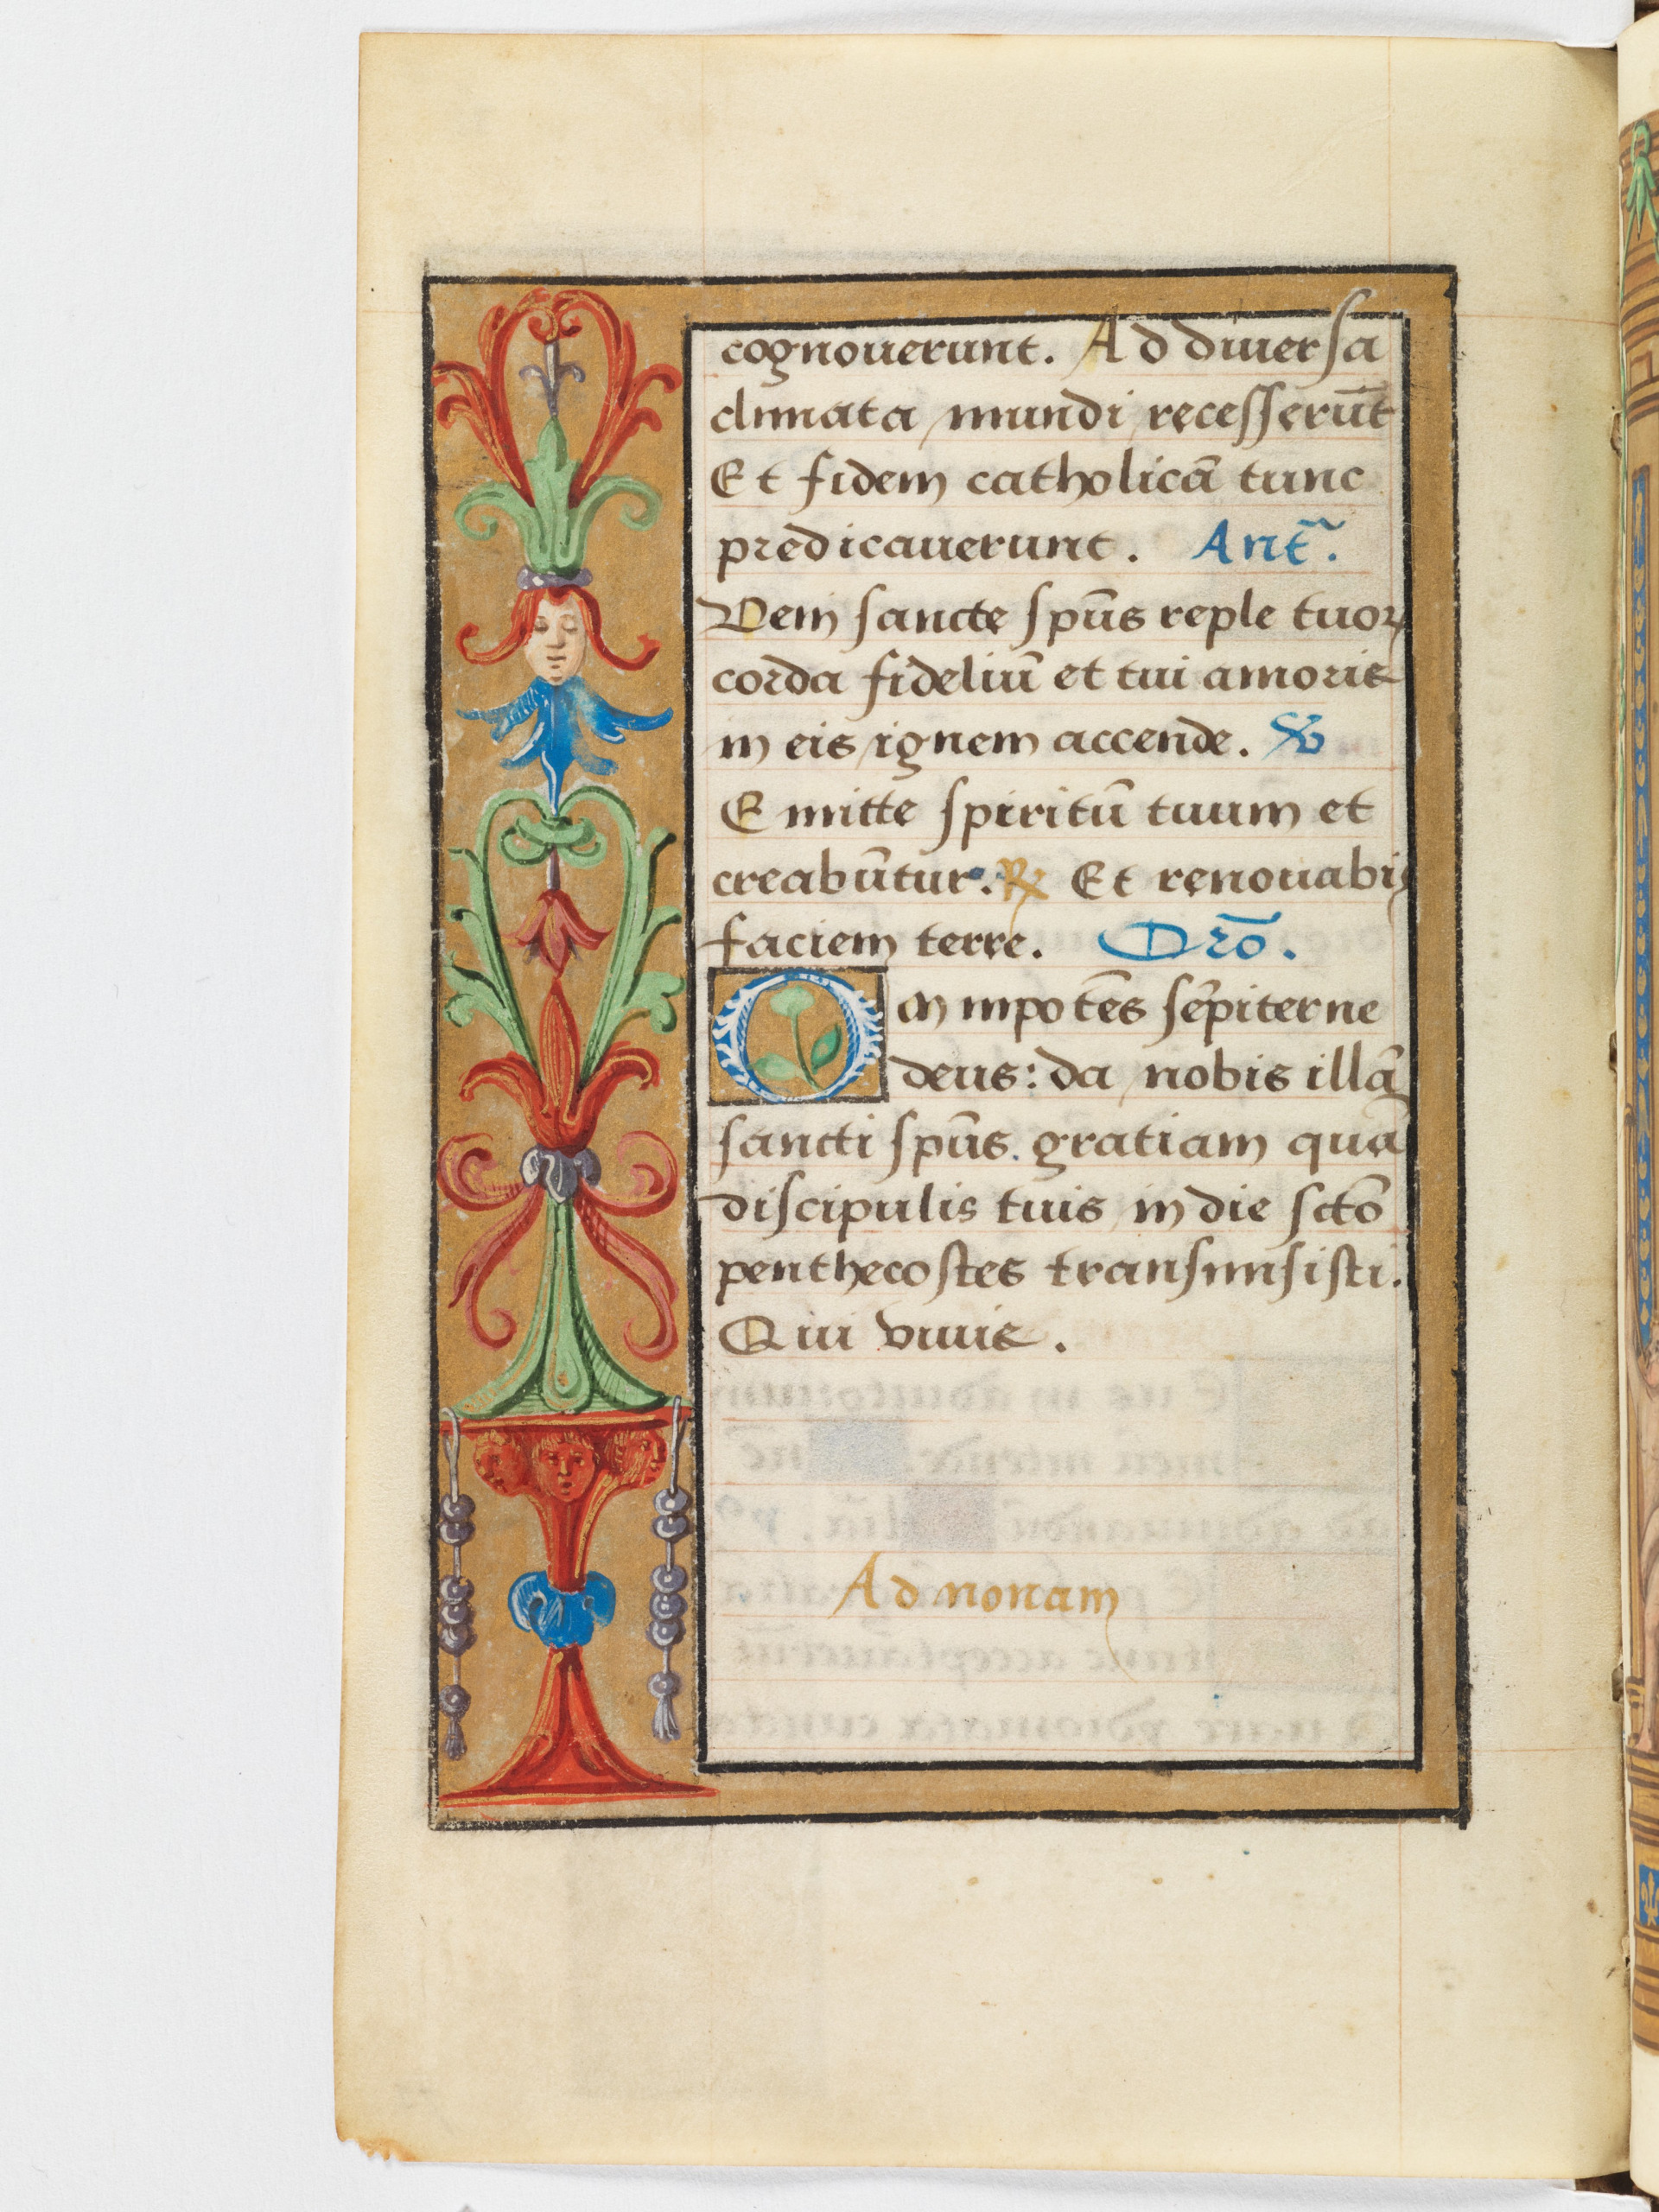 cognouerunt. Ad diuersa
climata mundi recesserūt
Et fidem catholicā tunc
predicauerunt. Ant̄.
Veni sancte sp̄us reple tuoꝝ
corda fideliū et tui amoris
in eis ignem accende. ℣
Emitte spiritū tuum et
creabūtur. ℟ Et renouabis
faciem terre. Orō.
Omnipotēs sēpiterne
deus: da nobis illā
sancti sp̄us. gratiam quā
discipulis tuis in die sctō
penthecostes transmisisti.
Qui viuis.
Ad nonam